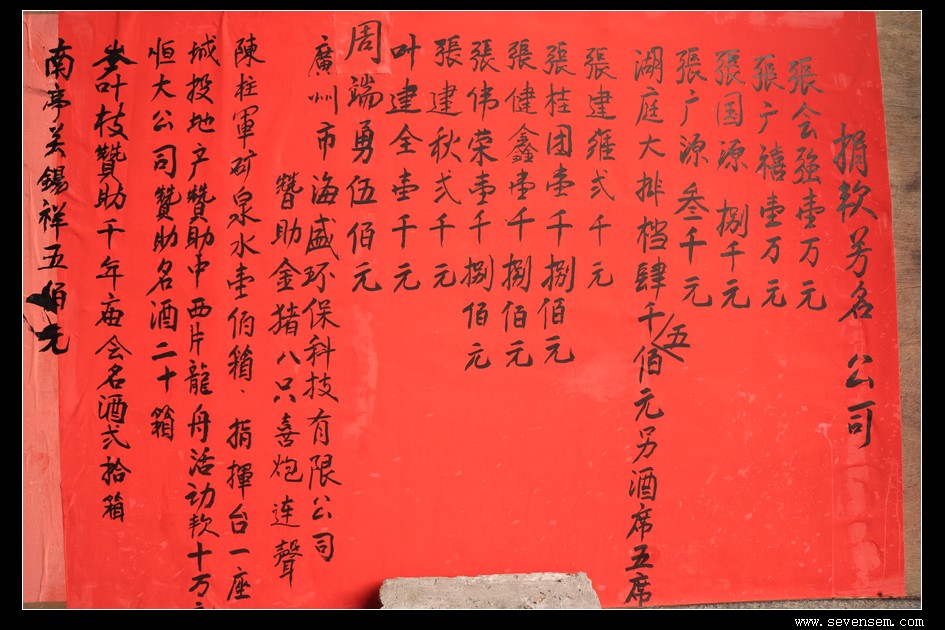 捐款芳名 公司
張会强壹万元
張广禧壹万元
張国源捌千元
張广源叁千元
湖庭大排档肆千五佰元另酒席五席
張建雍弍千元
張桂团壹千捌佰元
張健鑫壹千捌佰元
張伟荣壹千捌佰元
張建秋弍千元
叶建全壹千元
周端勇伍佰元
廣州市海盛环保科技有限公司
贊助金猪八只喜炮连聲
陳柱軍矿泉水壹佰箱·指揮台一座
城投地产贊助中西片龍舟活动款十万
恒大公司贊助名酒二十箱
叶枝贊助千年庙会名酒弍拾箱
南亭关錫祥五佰元
www.sevensem.com